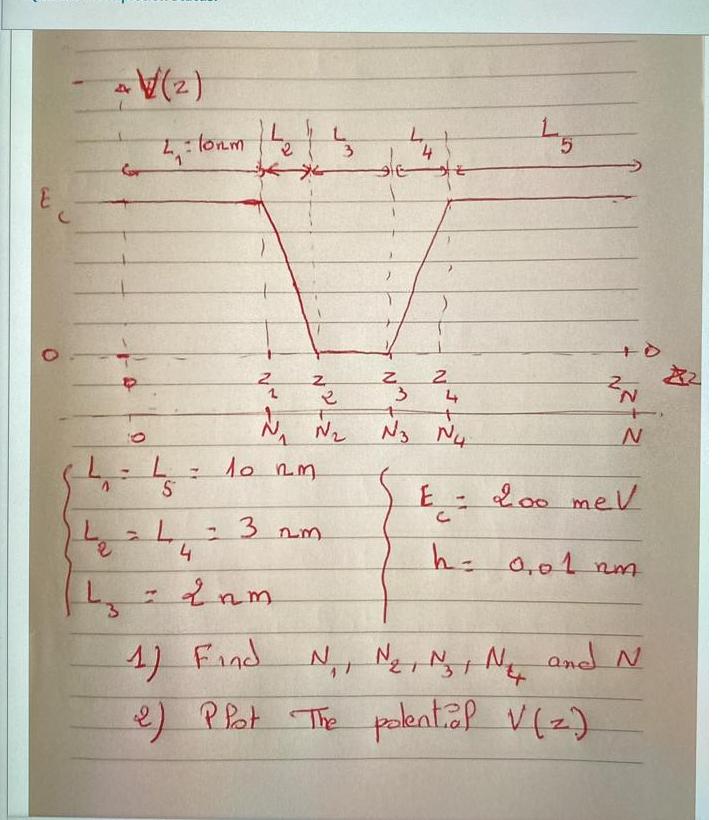 V(z)
L₁ = 10nm L₂ L₃ L₄ L₅
E_c
0 0
0 z₁ z₂ z₃ z₄ z_N z
0 N₁ N₂ N₃ N₄ N
L₁ = L₅ = 10 nm
E_c = 200 meV
L₂ = L₄ = 3 nm
h = 0,01 nm
L₃ = 2 nm
1) Find N₁, N₂, N₃, N₄ and N
2) Plot The potential V(z)